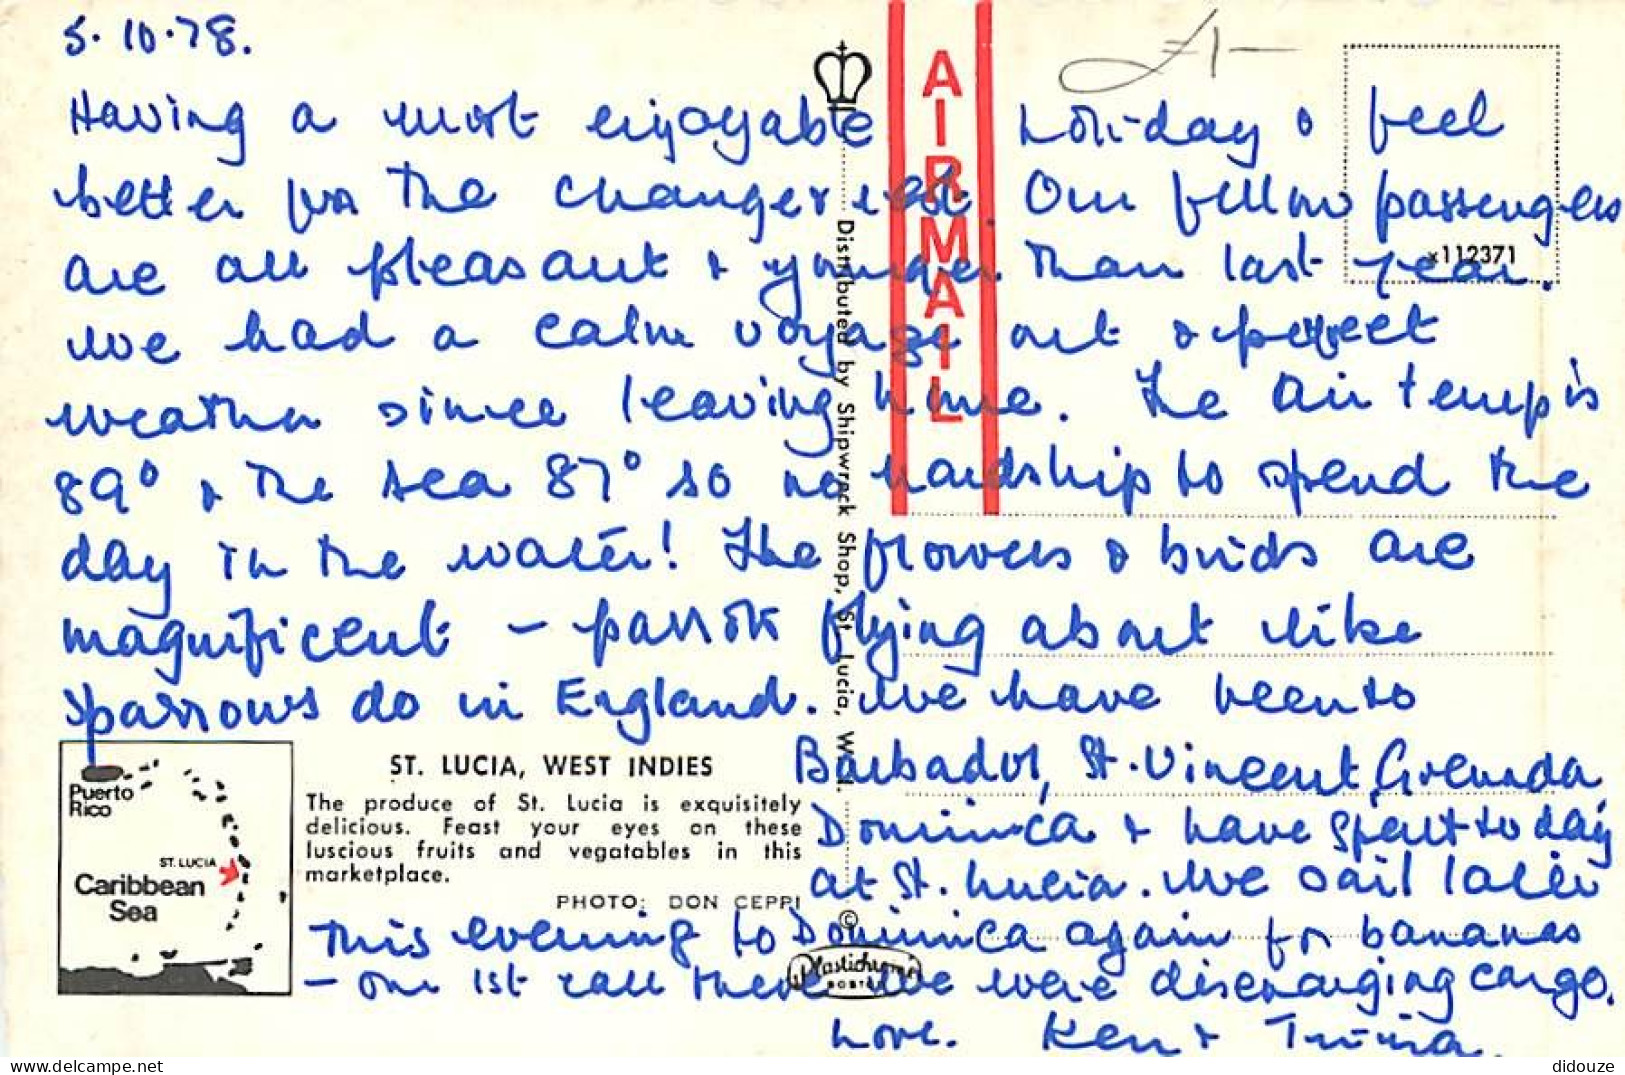 5.10.78.
£1 —
Having a most enjoyable holiday & feel
better for the change & rest. Our fellow passengers
are all pleasant & younger than last year.
We had a calm voyage out & perfect
weather since leaving home. The air temp is
89° & the sea 87° so no hardship to spend the
day in the water! The flowers & birds are
magnificent – parrots flying about like
sparrows do in England. We have been to
Barbados, St. Vincent, Grenada,
Dominica & have spent today
at St. Lucia. We sail later
this evening to Dominica again for bananas
– our 1st call there we were discharging cargo.
Love. Ken &
AIRMAIL
x112371
Distributed by Shipwrack Shop, St. Lucia, W.I.
ST. LUCIA, WEST INDIES
The produce of St. Lucia is exquisitely
delicious. Feast your eyes on these
luscious fruits and vegatables in this
marketplace.
PHOTO: DON CEPPI
Puerto
Rico
ST. LUCIA
Caribbean
Sea
©
Plastichrome
BOSTON
didouze